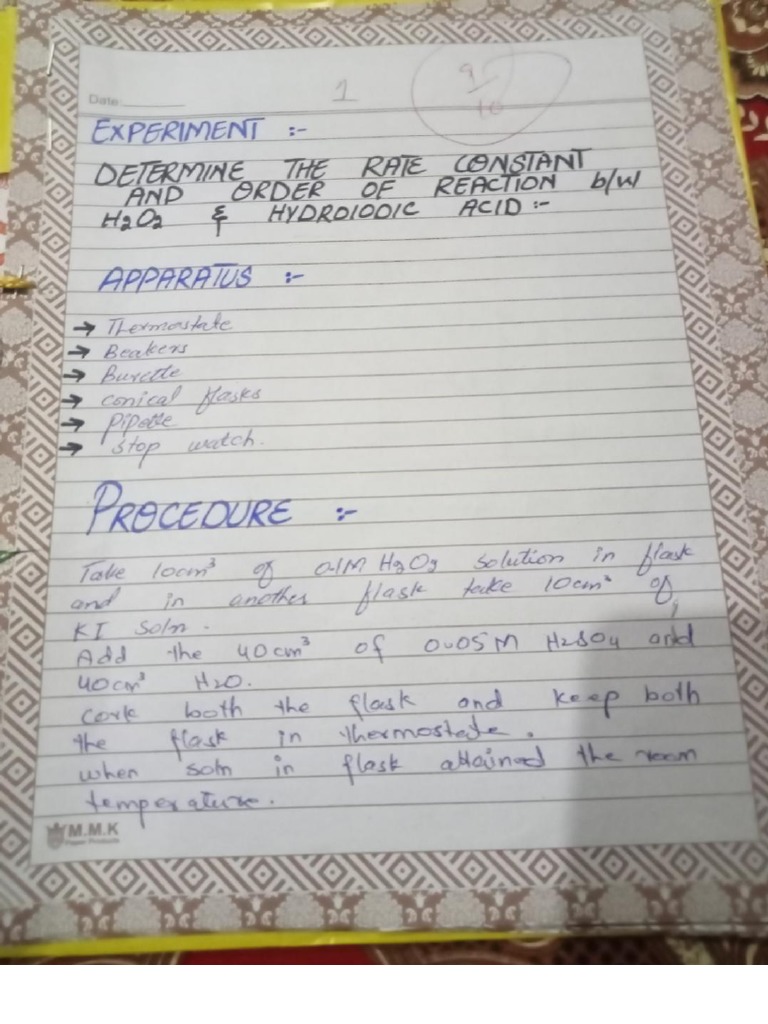 Date
1
9/10
EXPERIMENT :-
DETERMINE THE RATE CONSTANT
AND ORDER OF REACTION b/w
H2O2 & HYDROIODIC ACID :-
APPARATUS :-
→ Thermostate
→ Beakers
→ Burette
→ conical flasks
→ Pipette
→ Stop watch.
PROCEDURE :-
Take 10cm³ of 0.1M H2O2 solution in flask
and in another flask take 10cm³ of
KI soln.
Add the 40cm³ of 0.05M H2SO4 and
40cm³ H2O.
Cork both the flask and keep both
the flask in thermostate.
when soln in flask attained the room
temperature.
M.M.K
Paper Products